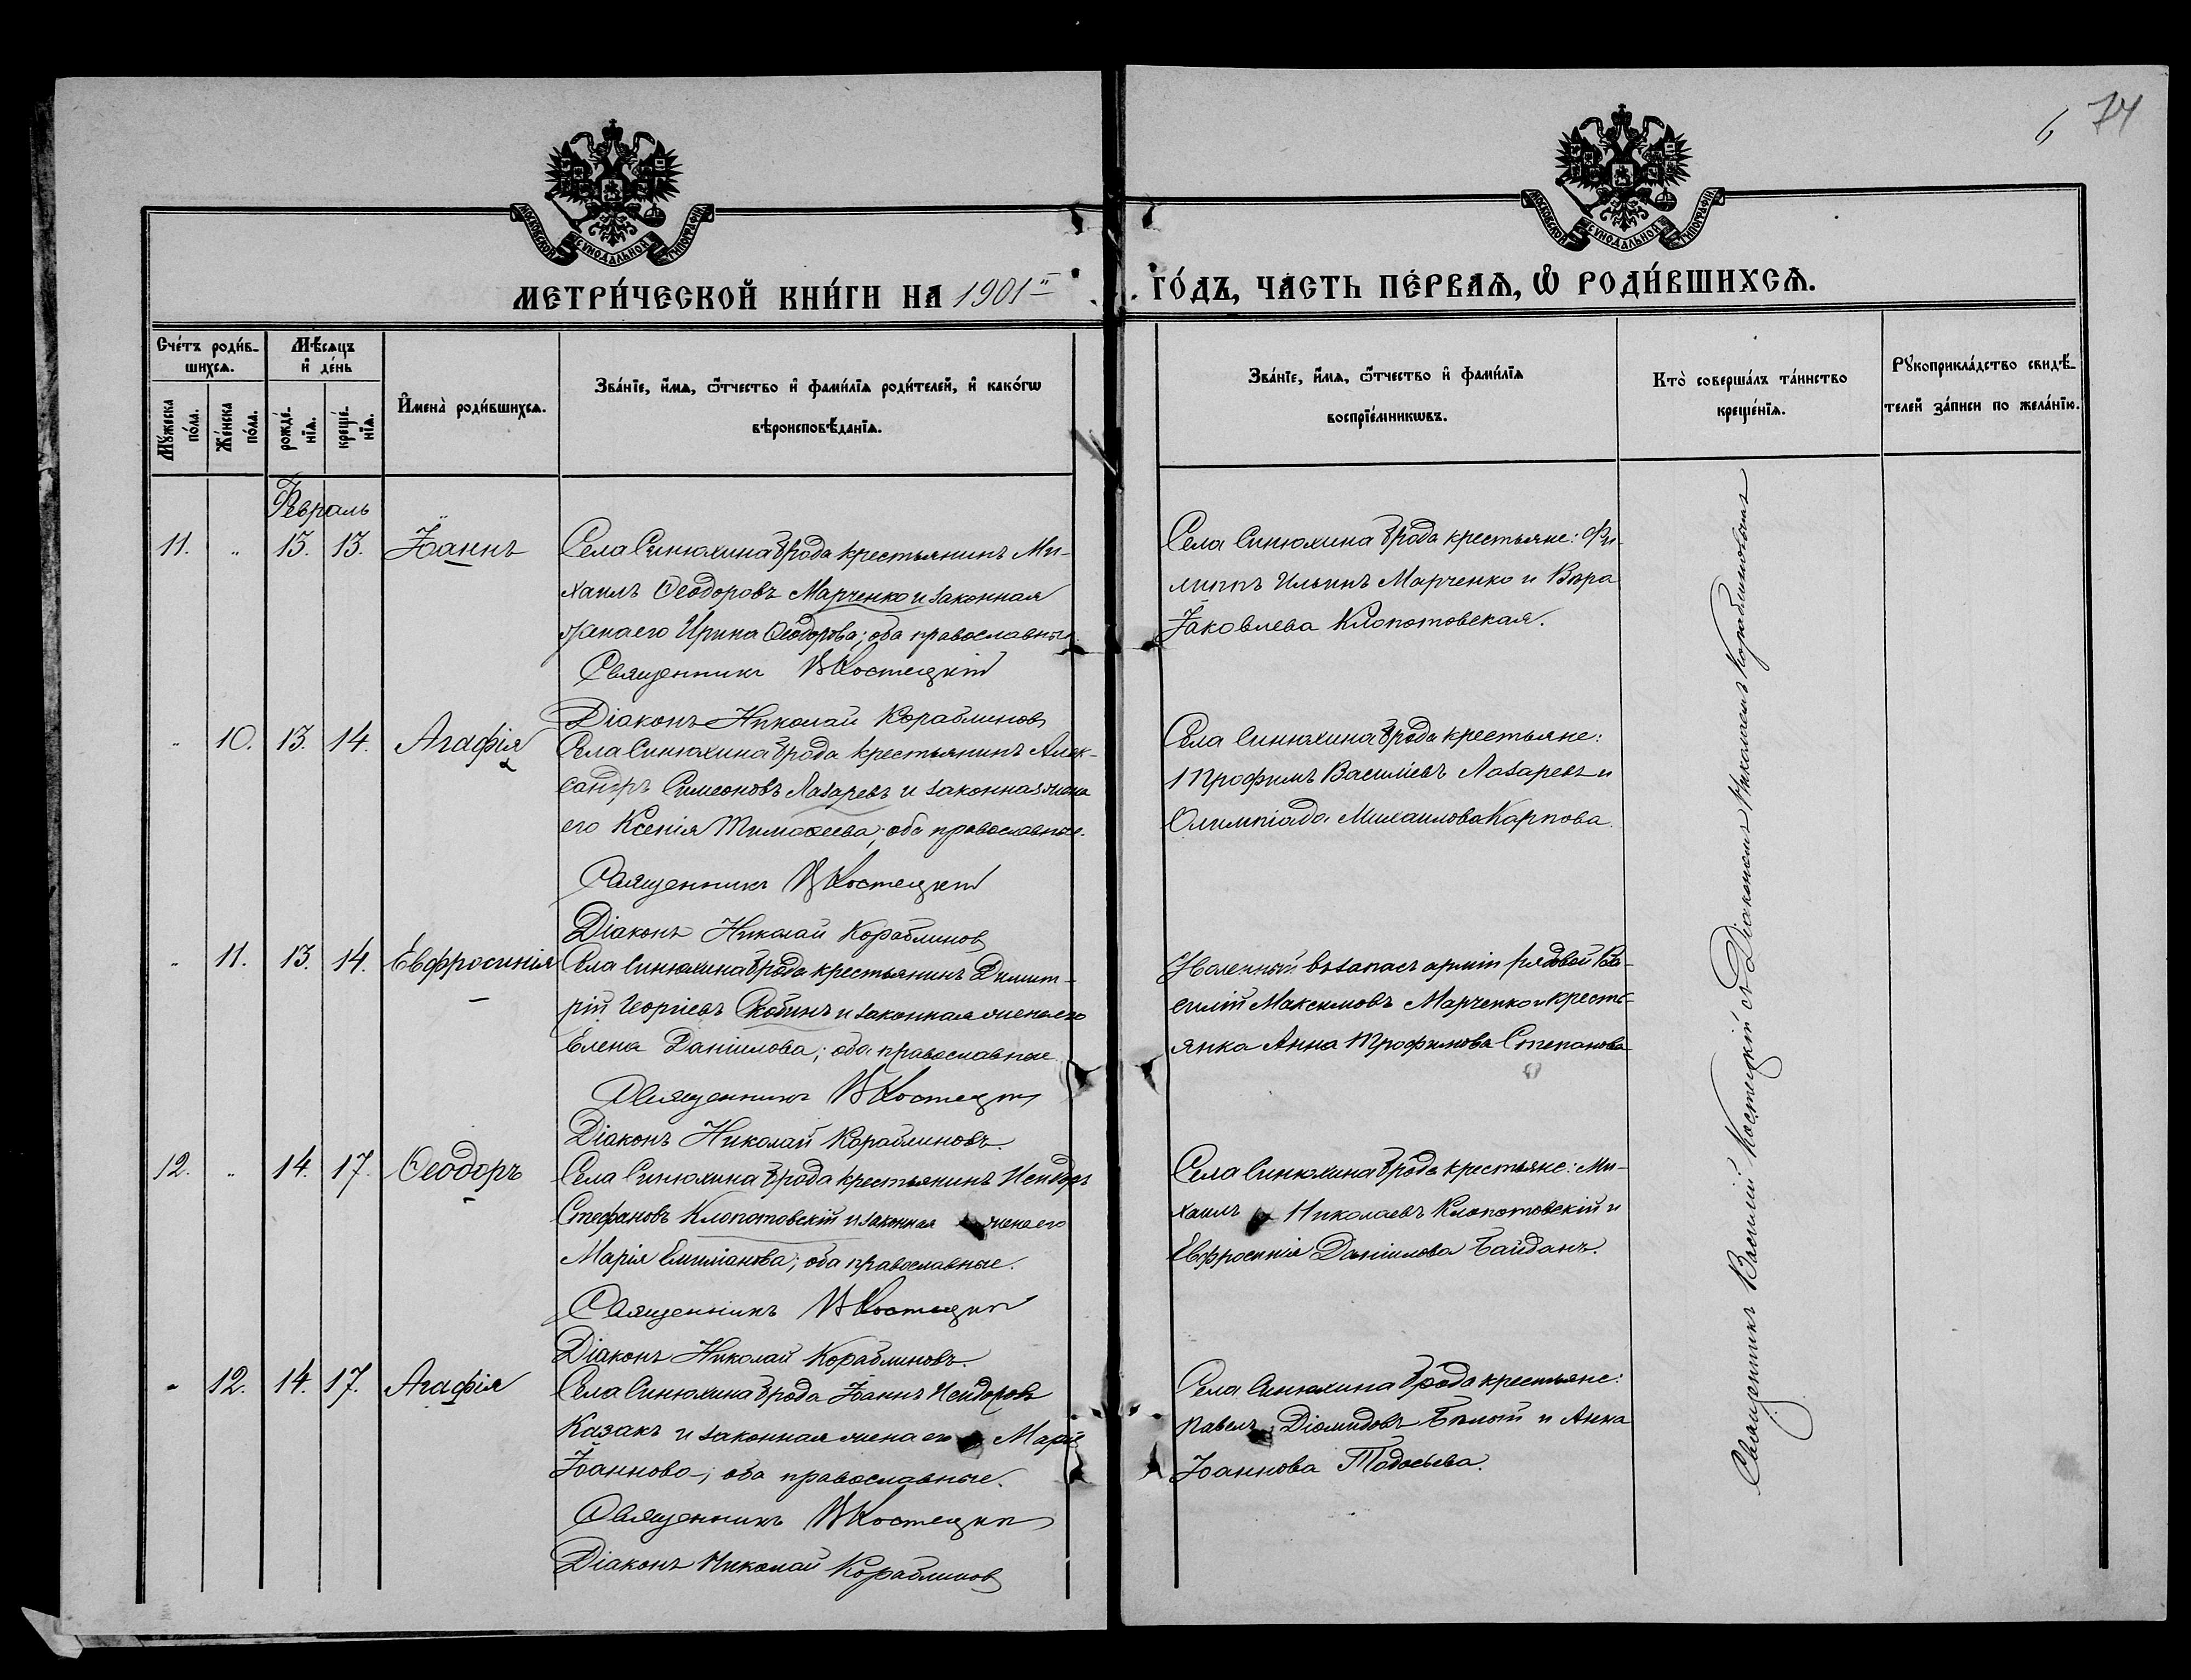 6 74
МОСКОВСКОЙ СУНОДАЛЬНОЙ ТИПОГРАФІИ
МОСКОВСКОЙ СУНОДАЛЬНОЙ ТИПОГРАФІИ
МЕТРИ́ЧЕСКОЙ КНИ́ГИ НА 1901й ГО́ДЪ, ЧА́СТЬ ПЕ́РВАѦ, Ѡ҆ РОДИ́ВШИХСѦ.
Сче́тъ роди́в-
шихсѧ.
Мꙋ́жеска
по́ла.
Же́нска
по́ла.
Мѣ́сѧцъ
и҆ де́нь
рожде́-
нїѧ.
креще́-
нїѧ.
И҆мена̀ роди́вшихсѧ.
Зва́нїе, и҆́мѧ, ѻ҆́тчество и҆ фами́лїѧ роди́телей, и҆ како́гѡ
вѣроисповѣ́данїѧ.
Зва́нїе, и҆́мѧ, ѻ҆́тчество и҆ фами́лїѧ
воспрїе́мникѡвъ.
Кто̀ соверша́лъ та́инство
креще́нїѧ.
Рꙋкоприкла́дство свидѣ́-
телей за́писи по жела́нїю.
Февраль
11. „ 13. 13. Іоаннъ
Села Синюхина Брода крестьянинъ Ми-
хаилъ Ѳеодоровъ Марченко и законная
жена его Ирина Ѳеодорова; оба православные.
Священникъ В Костецкій
Діаконъ Николай Кораблиновъ
Села Синюхина Брода крестьяне: Фи-
липпъ Ильинъ Марченко и Вѣра
Іаковлева Клопотовская.
„ 10. 13. 14. Агафія
Села Синюхина Брода крестьянинъ Алек-
сандръ Симеоновъ Лазаревъ и законная жена
его Ксенія Тимоѳеева; оба православные.
Священникъ В Костецкій
Діаконъ Николай Кораблиновъ
Села Синюхина Брода крестьяне:
Трофимъ Василіевъ Лазаревъ и
Олимпіада Михаилова Карпова.
„ 11. 13. 14. Евфросинія
Села Синюхина Брода крестьянинъ Димит-
рій Георгіевъ Скобинъ и законная жена его
Елена Даніилова; оба православные
Священникъ В Костецкій
Діаконъ Николай Кораблиновъ.
въ запасъ арміи рядовой Ва-
силій Максимовъ Марченко и кресть-
янка Анна Трофимова Степанова
12. „ 14. 17. Ѳеодоръ
Села Синюхина Брода крестьянинъ Исидоръ
Стефановъ Клопотовскій и законная жена его
Марія Емиліанова; оба православные.
Священникъ В Костецкій
Діаконъ Николай Кораблиновъ.
Села Синюхина Брода крестьяне: Ми-
хаилъ Николаевъ Клопотовскій и
Евфросинія Даніилова Байданъ.
„ 12. 14. 17. Агафія
Села Синюхина Брода Іоаннъ Исидоровъ
Казакъ и законная жена его Марія
Іоаннова; оба православные.
Священникъ В Костецкій
Діаконъ Николай Кораблиновъ
Села Синюхина Брода крестьяне:
Павелъ Діомидовъ Бѣлый и Анна
Іоаннова Тодосьева.
Священникъ Василій Костецкій съ Діакономъ Николаемъ Кораблиновымъ